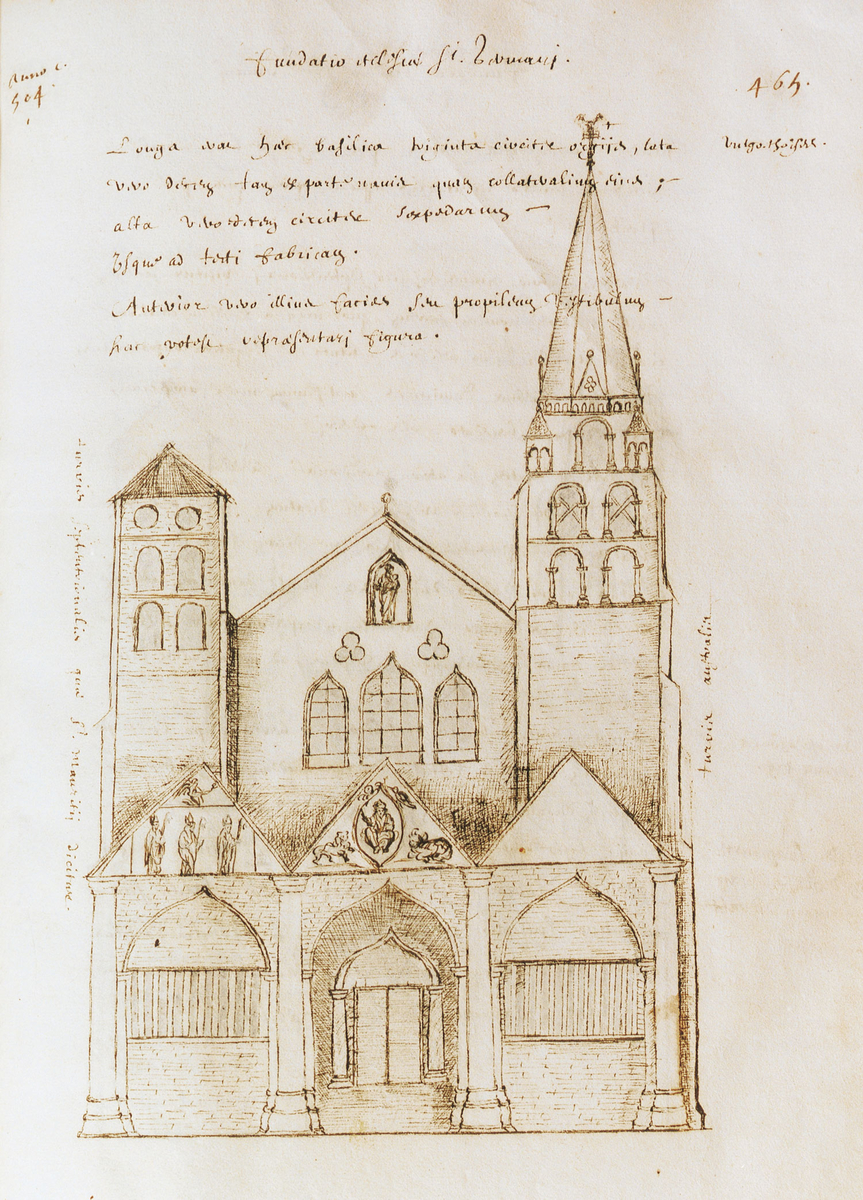 Fundatio eclesiæ St. Germanj.
Anno
504
465.
Longa erat hæc basilica viginta circiter orgijs, lata
vulgo thoyses.
vero decem tam ex parte navis quam collateralium eius ;
alta vero decem circiter sexpedarum
Usque ad tecti fabricam.
Anterior vero illius facies seu propileum vestibulum
hac potest repræsentarj figura.
turris septentrionalis quæ St. Mauritij dicitur.
turris australis